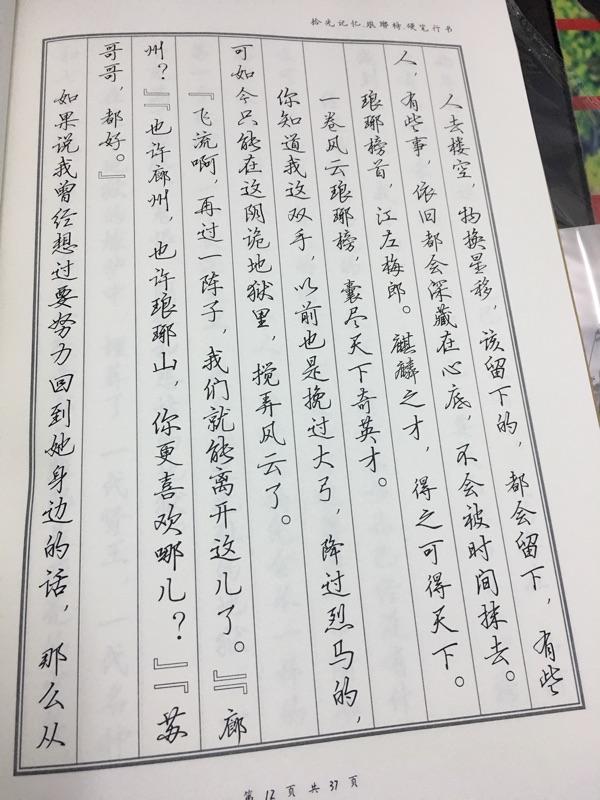 拾光记忆.琅琊榜.硬笔行书
人去楼空，物换星移，该留下的，都会留下，有些
人，有些事，依旧都会深藏在心底，不会被时间抹去。
琅琊榜首，江左梅郎。麒麟之才，得之可得天下。
一卷风云琅琊榜，囊尽天下奇英才。
你知道我这双手，以前也是挽过大弓，降过烈马的，
可如今只能在这阴诡地狱里，搅弄风云了。
『飞流啊，再过一阵子，我们就能离开这儿了。』『廊
州？』『也许廊州，也许琅琊山，你更喜欢哪儿？』『苏
哥哥，都好。』
如果说我曾经想过要努力回到她身边的话，那么从
第12页共37页